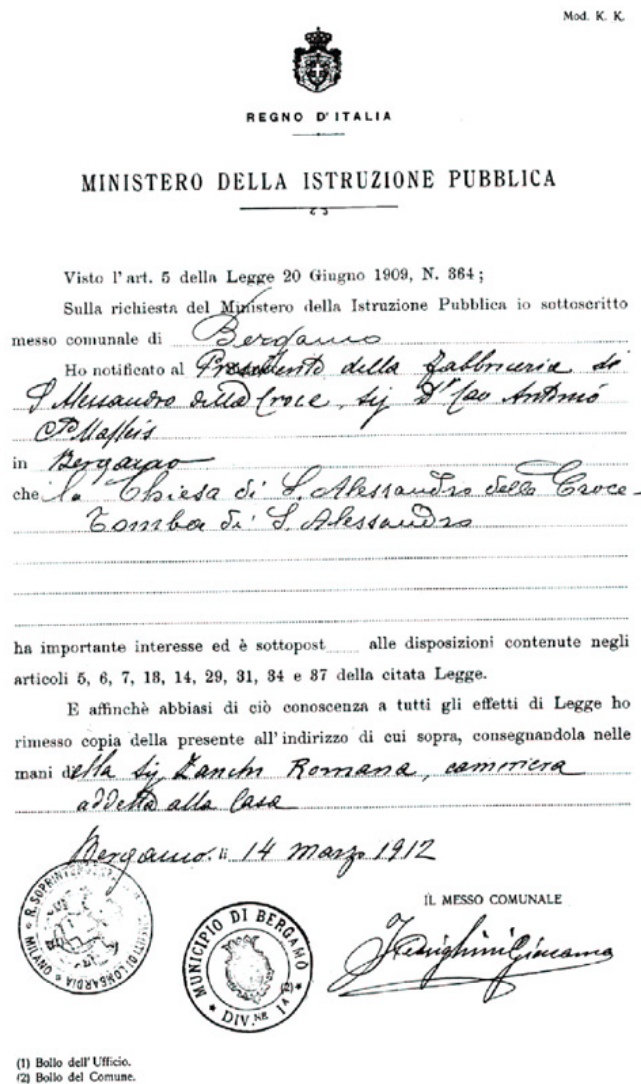 Mod. K. K.
REGNO D'ITALIA
MINISTERO DELLA ISTRUZIONE PUBBLICA
Visto l'art. 5 della Legge 20 Giugno 1909, N. 364;
Sulla richiesta del Ministero della Istruzione Pubblica io sottoscritto
messo comunale di Bergamo
Ho notificato al Presidente della Fabbriceria di
S. Alessandro della Croce, Sig Dr Cav Antonio
Maffeis
in Bergamo
che la Chiesa di S. Alessandro della Croce -
Tomba di S. Alessandro
ha importante interesse ed è sottopost alle disposizioni contenute negli
articoli 5, 6, 7, 13, 14, 29, 31, 34 e 37 della citata Legge.
E affinchè abbiasi di ciò conoscenza a tutti gli effetti di Legge ho
rimesso copia della presente all'indirizzo di cui sopra, consegnandola nelle
mani della Sig Zanchi Romana, cameriera
addetta alla Casa
Bergamo. li 14 marzo 1912
IL MESSO COMUNALE
MUNICIPIO DI BERGAMO
DIV.NE 1ª
(2)
R. SOPRINTENDENZA LOMBARDIA MILANO
(1) Bollo dell'Ufficio.
(2) Bollo del Comune.